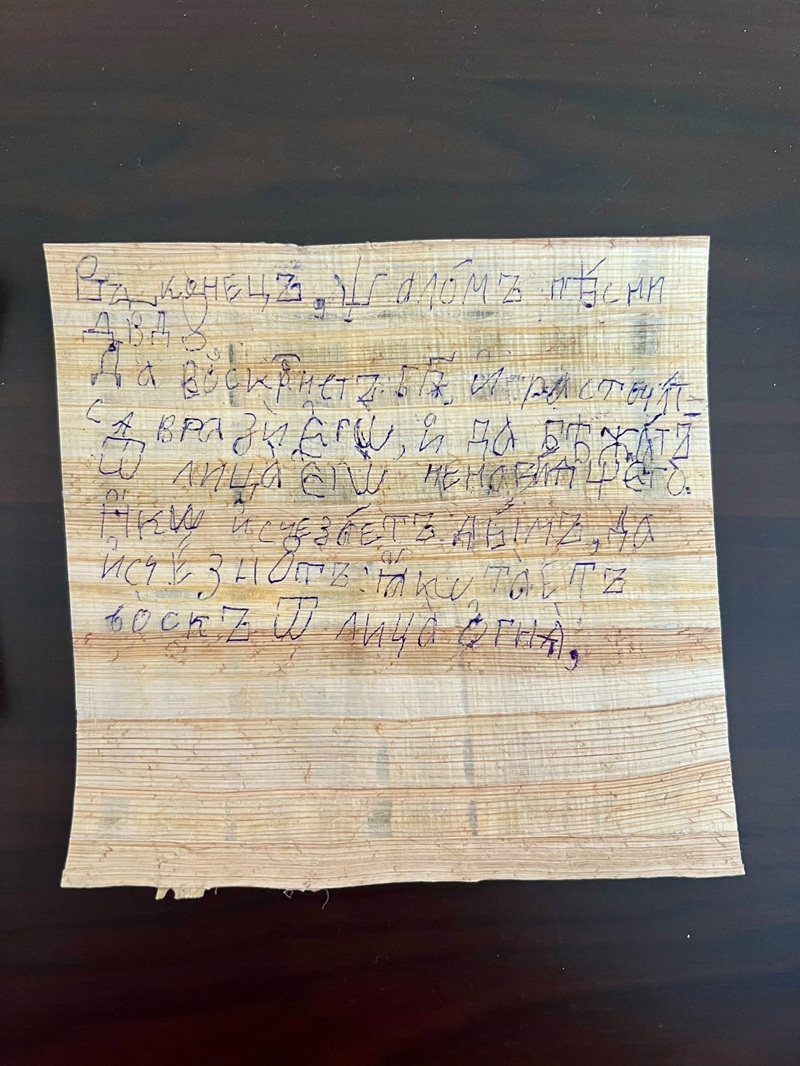 Въ конецъ, ѱало́мъ пѣ́сни
дв҃дꙋ
Да воскр҃нетъ бг҃ъ, и҆ расточат-
сѧ вразѝ є҆гѡ̀, и҆ да бѣжа́тъ
ѿ лица̀ є҆гѡ̀ ненави́дѧщїи є҆го̀.
ꙗ҆́кѡ и҆счеза́етъ ды́мъ, да
и҆сче́знꙋтъ: ꙗ҆́кѡ та́етъ
воскъ ѿ лица̀ ѻ҆гнѧ̀,